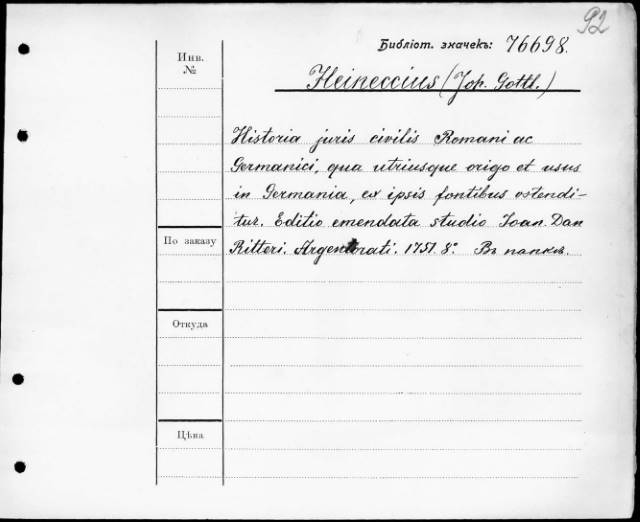 92
Библіот. значекъ: 76698.
Инв.
№
Heineccius (Joh. Gottl.)
Historia juris civilis Romani ac
Germanici, qua utriusque origo et usus
in Germania, ex ipsis fontibus ostendi-
tur. Editio emendata studio Joan. Dan
Ritteri. Argentorati. 1751. 8°. Въ папкѣ.
По заказу
Откуда
Цѣна